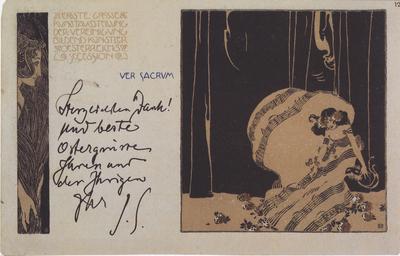 ERSTE GROSSE
KUNSTAUSSTELLUNG
DER VEREINIGUNG
BILDEND KÜNSTLER
OESTERREICHS
SECESSION
VER SACRVM
Herzlichen Dank!
Und beste
Ostergrüsse
Ihnen und
den Ihrigen
Ihr J.S.
12